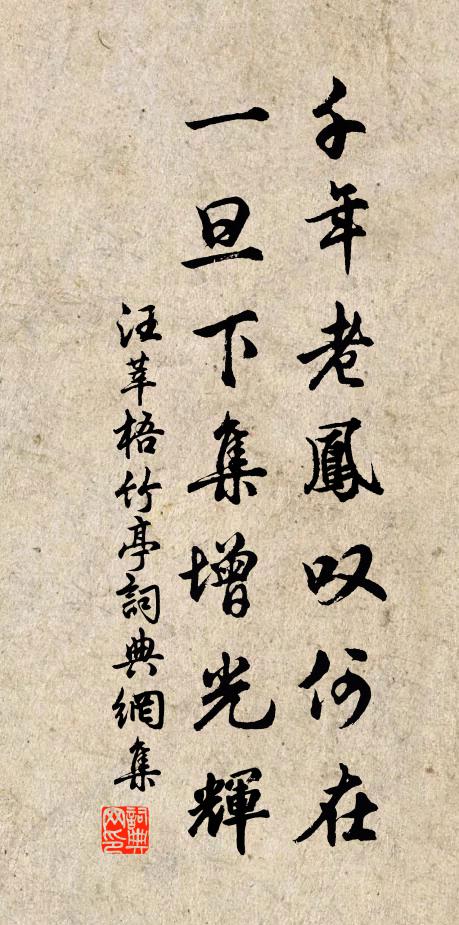 千年老鳳叹何在
一旦下集增光輝
汪莘梧竹亭詞典網集
詞典网印